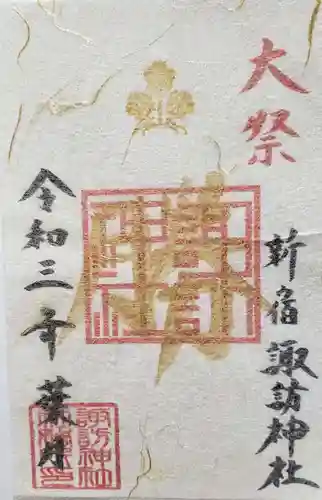 大祭
新宿 諏訪神社
令和三年 葉月
諏訪神社